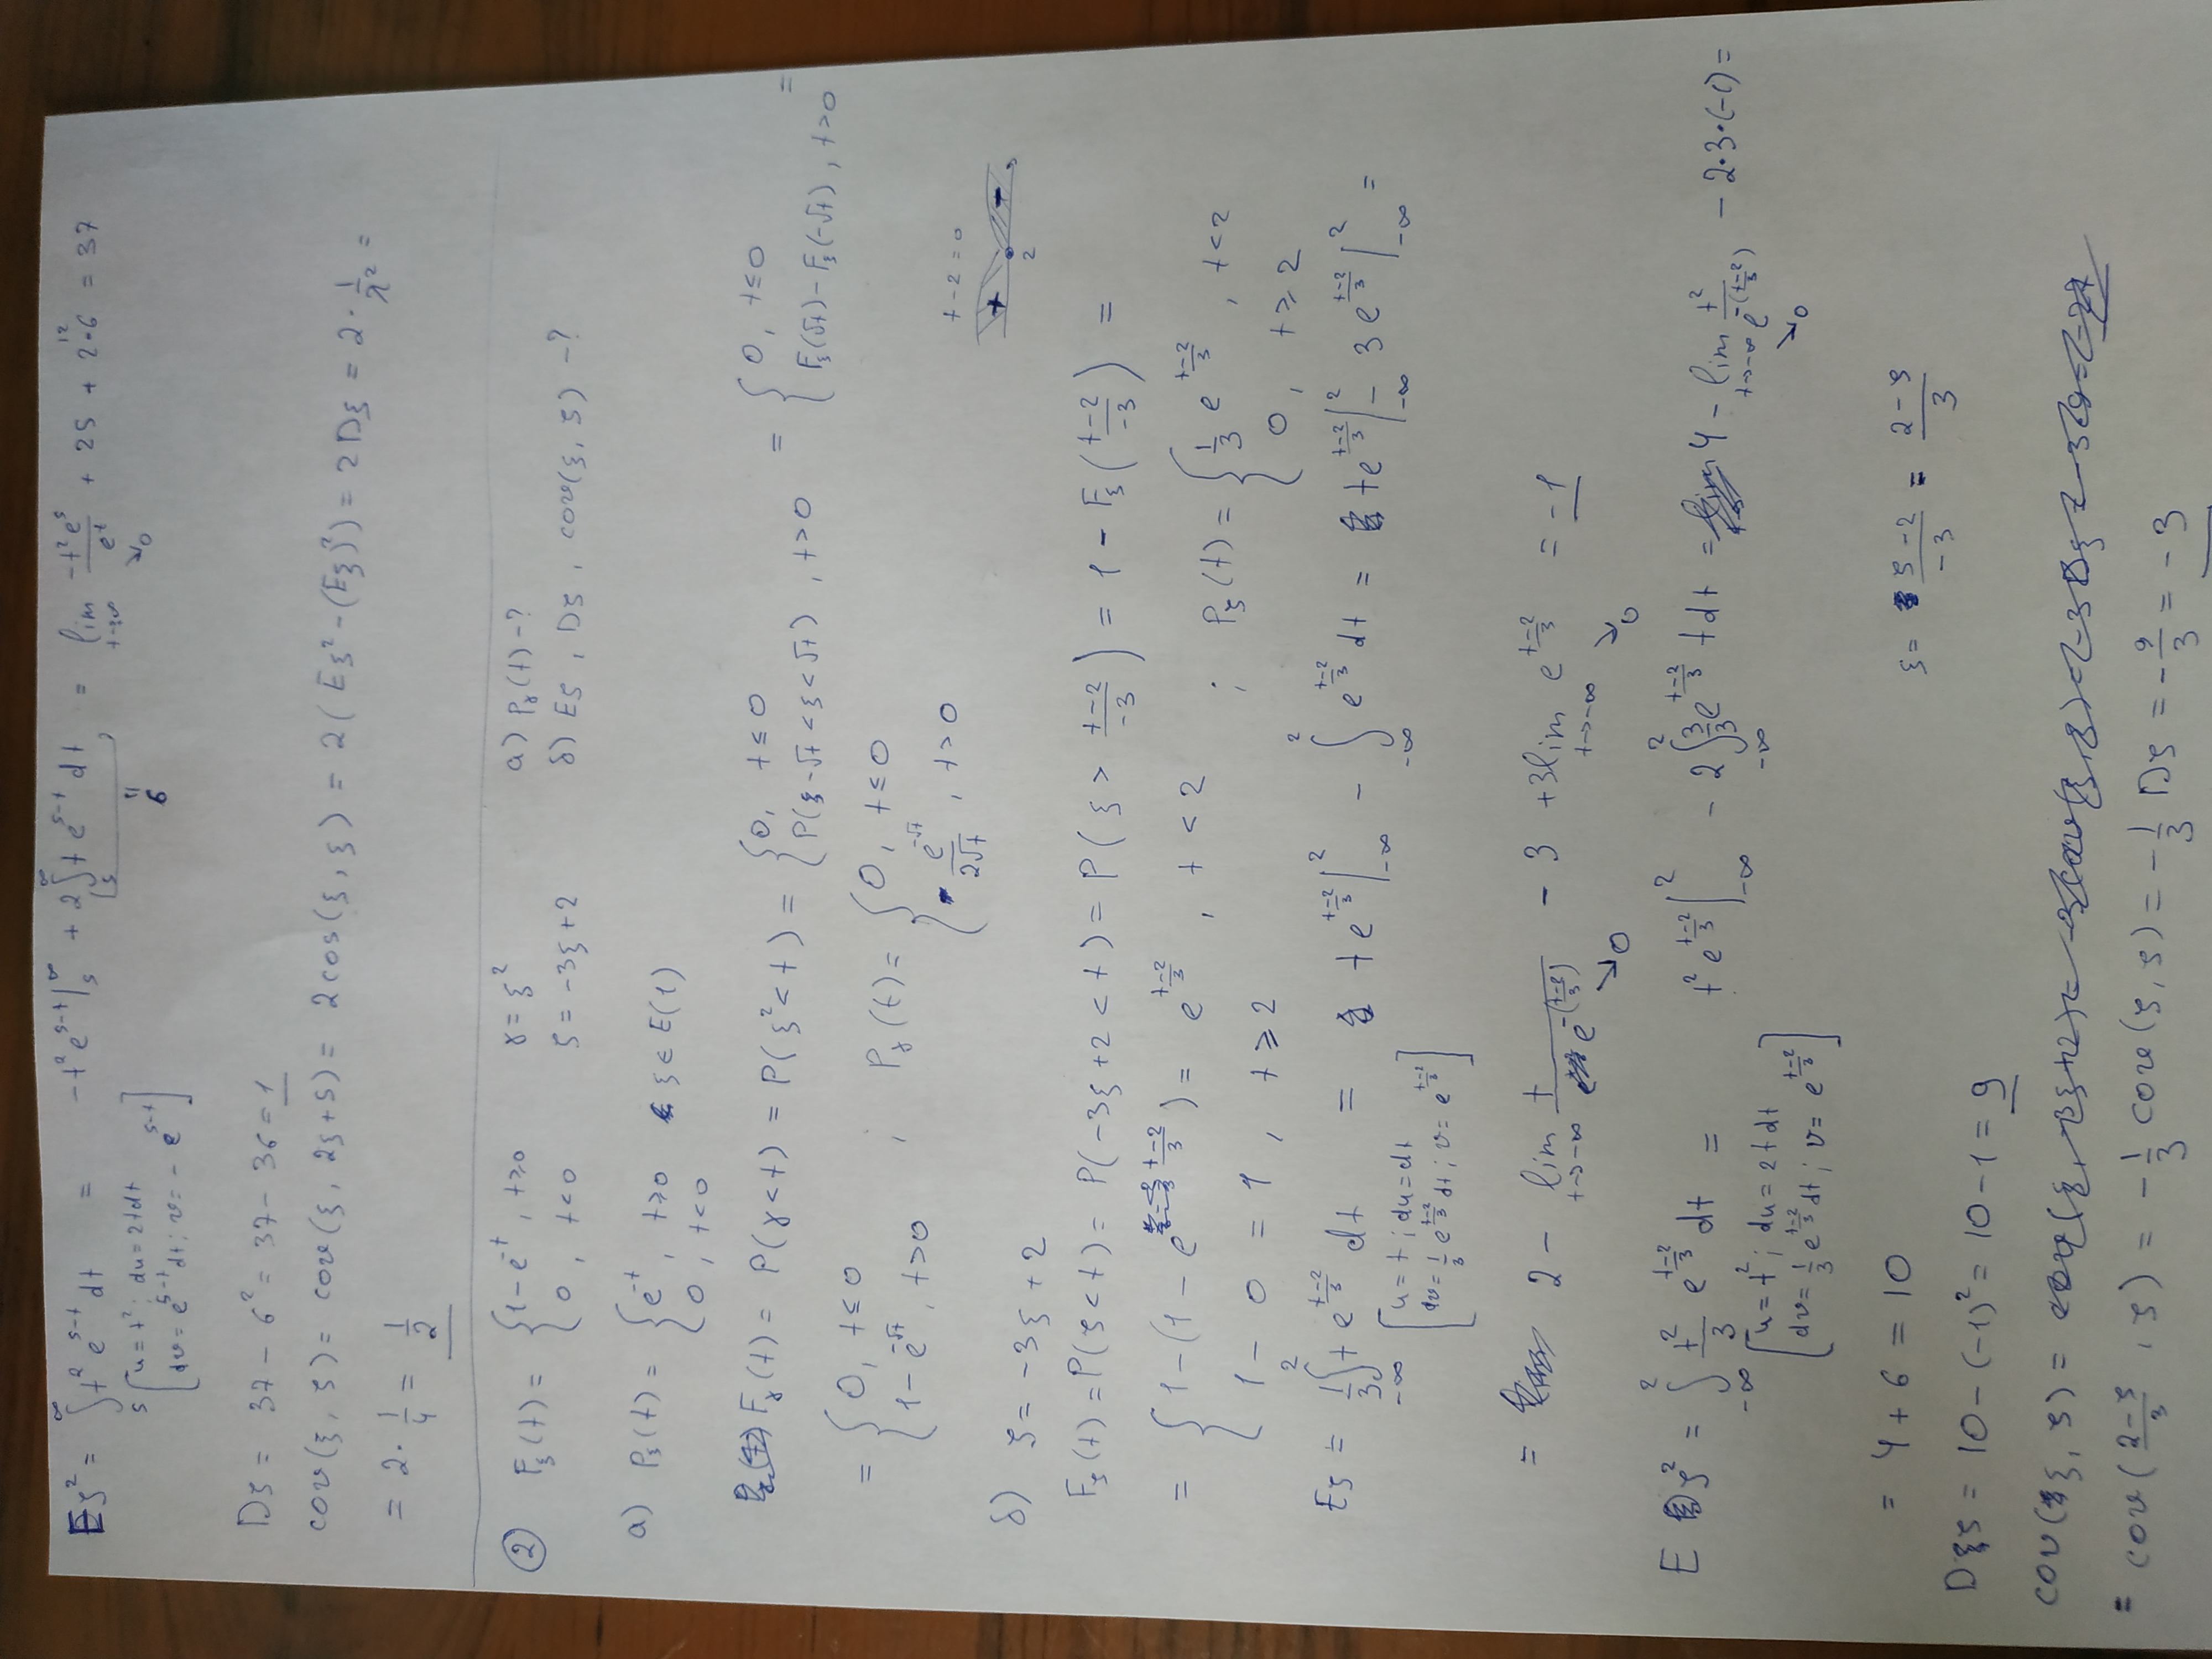 Eζ² = ∫₅^∞ t² e^{5-t} dt = -t² e^{5-t} |₅^∞ + 2 ∫₅^∞ t e^{5-t} dt = lim_{t→∞} (-t² e⁵)/(e^t) + 25 + 2·6 = 37
[u = t²; du = 2tdt
dv = e^{5-t} dt; v = - e^{5-t}]
" 6
↘0
12
Dζ = 37 - 6² = 37 - 36 = 1
cov(ξ, ζ) = cov(ξ, 2ξ+5) = 2cos(ξ, ξ) = 2(Eξ² - (Eξ)²) = 2Dξ = 2 · 1/λ² =
= 2 · 1/4 = 1/2
② F_ξ(t) = { 1 - e^{-t}, t≥0 γ = ξ² а) P_γ(t) - ?
0, t<0 ζ = -3ξ+2 б) Eζ, Dζ, cov(ξ, ζ) - ?
а) P_ξ(t) = { e^{-t}, t≥0 ξ ∈ E(1)
0, t<0
F_γ(t) = P(γ<t) = P(ξ²<t) = { 0, t≤0 = { 0, t≤0 =
P(-√t < ξ < √t), t>0 F_ξ(√t) - F_ξ(-√t), t>0
= { 0, t≤0 ; P_γ(t) = { 0, t≤0
1 - e^{-√t}, t>0 e^{-√t}/(2√t), t>0
t-2=0
+ -
2
б) ζ = -3ξ + 2
F_ζ(t) = P(ζ<t) = P(-3ξ+2<t) = P(ξ > (t-2)/(-3)) = 1 - F_ξ((t-2)/(-3)) =
= { 1-(1 - e^{(t-2)/3}) = e^{(t-2)/3}, t<2 ; P_ζ(t) = { 1/3 e^{(t-2)/3}, t<2
1 - 0 = 1, t≥2 0, t≥2
Eζ = 1/3 ∫_{-∞}^2 t e^{(t-2)/3} dt = t e^{(t-2)/3} |_{-∞}^2 - ∫_{-∞}^2 e^{(t-2)/3} dt = t e^{(t-2)/3} |_{-∞}^2 - 3 e^{(t-2)/3} |_{-∞}^2 =
[u = t; du = dt
dv = 1/3 e^{(t-2)/3} dt; v = e^{(t-2)/3}]
= 2 - lim_{t→-∞} t/(e^{-((t-2)/3)}) - 3 + 3lim_{t→-∞} e^{(t-2)/3} = -1
↘0 ↘0
E ζ² = ∫_{-∞}^2 t²/3 e^{(t-2)/3} dt = t² e^{(t-2)/3} |_{-∞}^2 - 2 ∫_{-∞}^2 3/3 e^{(t-2)/3} t dt = 4 - lim_{t→-∞} t²/(e^{-((t-2)/3)}) - 2·3·(-1) =
[u = t²; du = 2tdt
dv = 1/3 e^{(t-2)/3} dt; v = e^{(t-2)/3}]
↘0
= 4 + 6 = 10
ξ = (ζ-2)/(-3) = (2-ζ)/3
Dζ = 10 - (-1)² = 10 - 1 = 9
cov(ξ, ζ) =
= cov((2-ζ)/3, ζ) = -1/3 cov(ζ, ζ) = -1/3 Dζ = -9/3 = -3